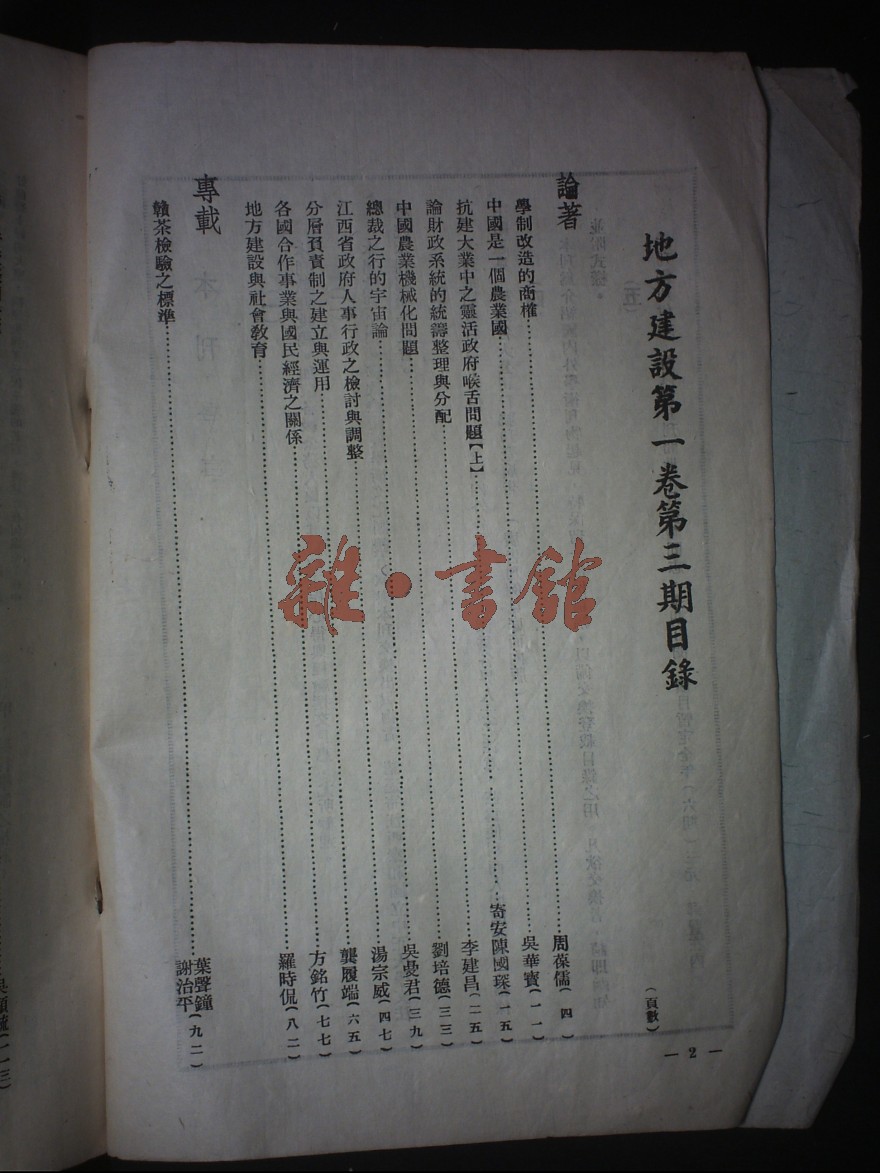 地方建設第一卷第三期目錄
(頁數)
論著
學制改造的商榷……周葆儒(四)
中國是一個農業國……吳華寶(一一)
抗建大業中之靈活政府喉舌問題【上】……寄安陳國琛(一五)
論財政系統的統籌整理與分配……李建昌(二五)
中國農業機械化問題……劉培德(三三)
總裁之行的宇宙論……吳曼君(三九)
江西省政府人事行政之檢討與調整……湯宗威(四七)
分層負責制之建立與運用……龔履端(六五)
各國合作事業與國民經濟之關係……方銘竹(七七)
地方建設與社會教育……羅時侃(八二)
專載
贛茶檢驗之標準……葉聲鐘 謝治平(九二)
— 2 —
雜·書館